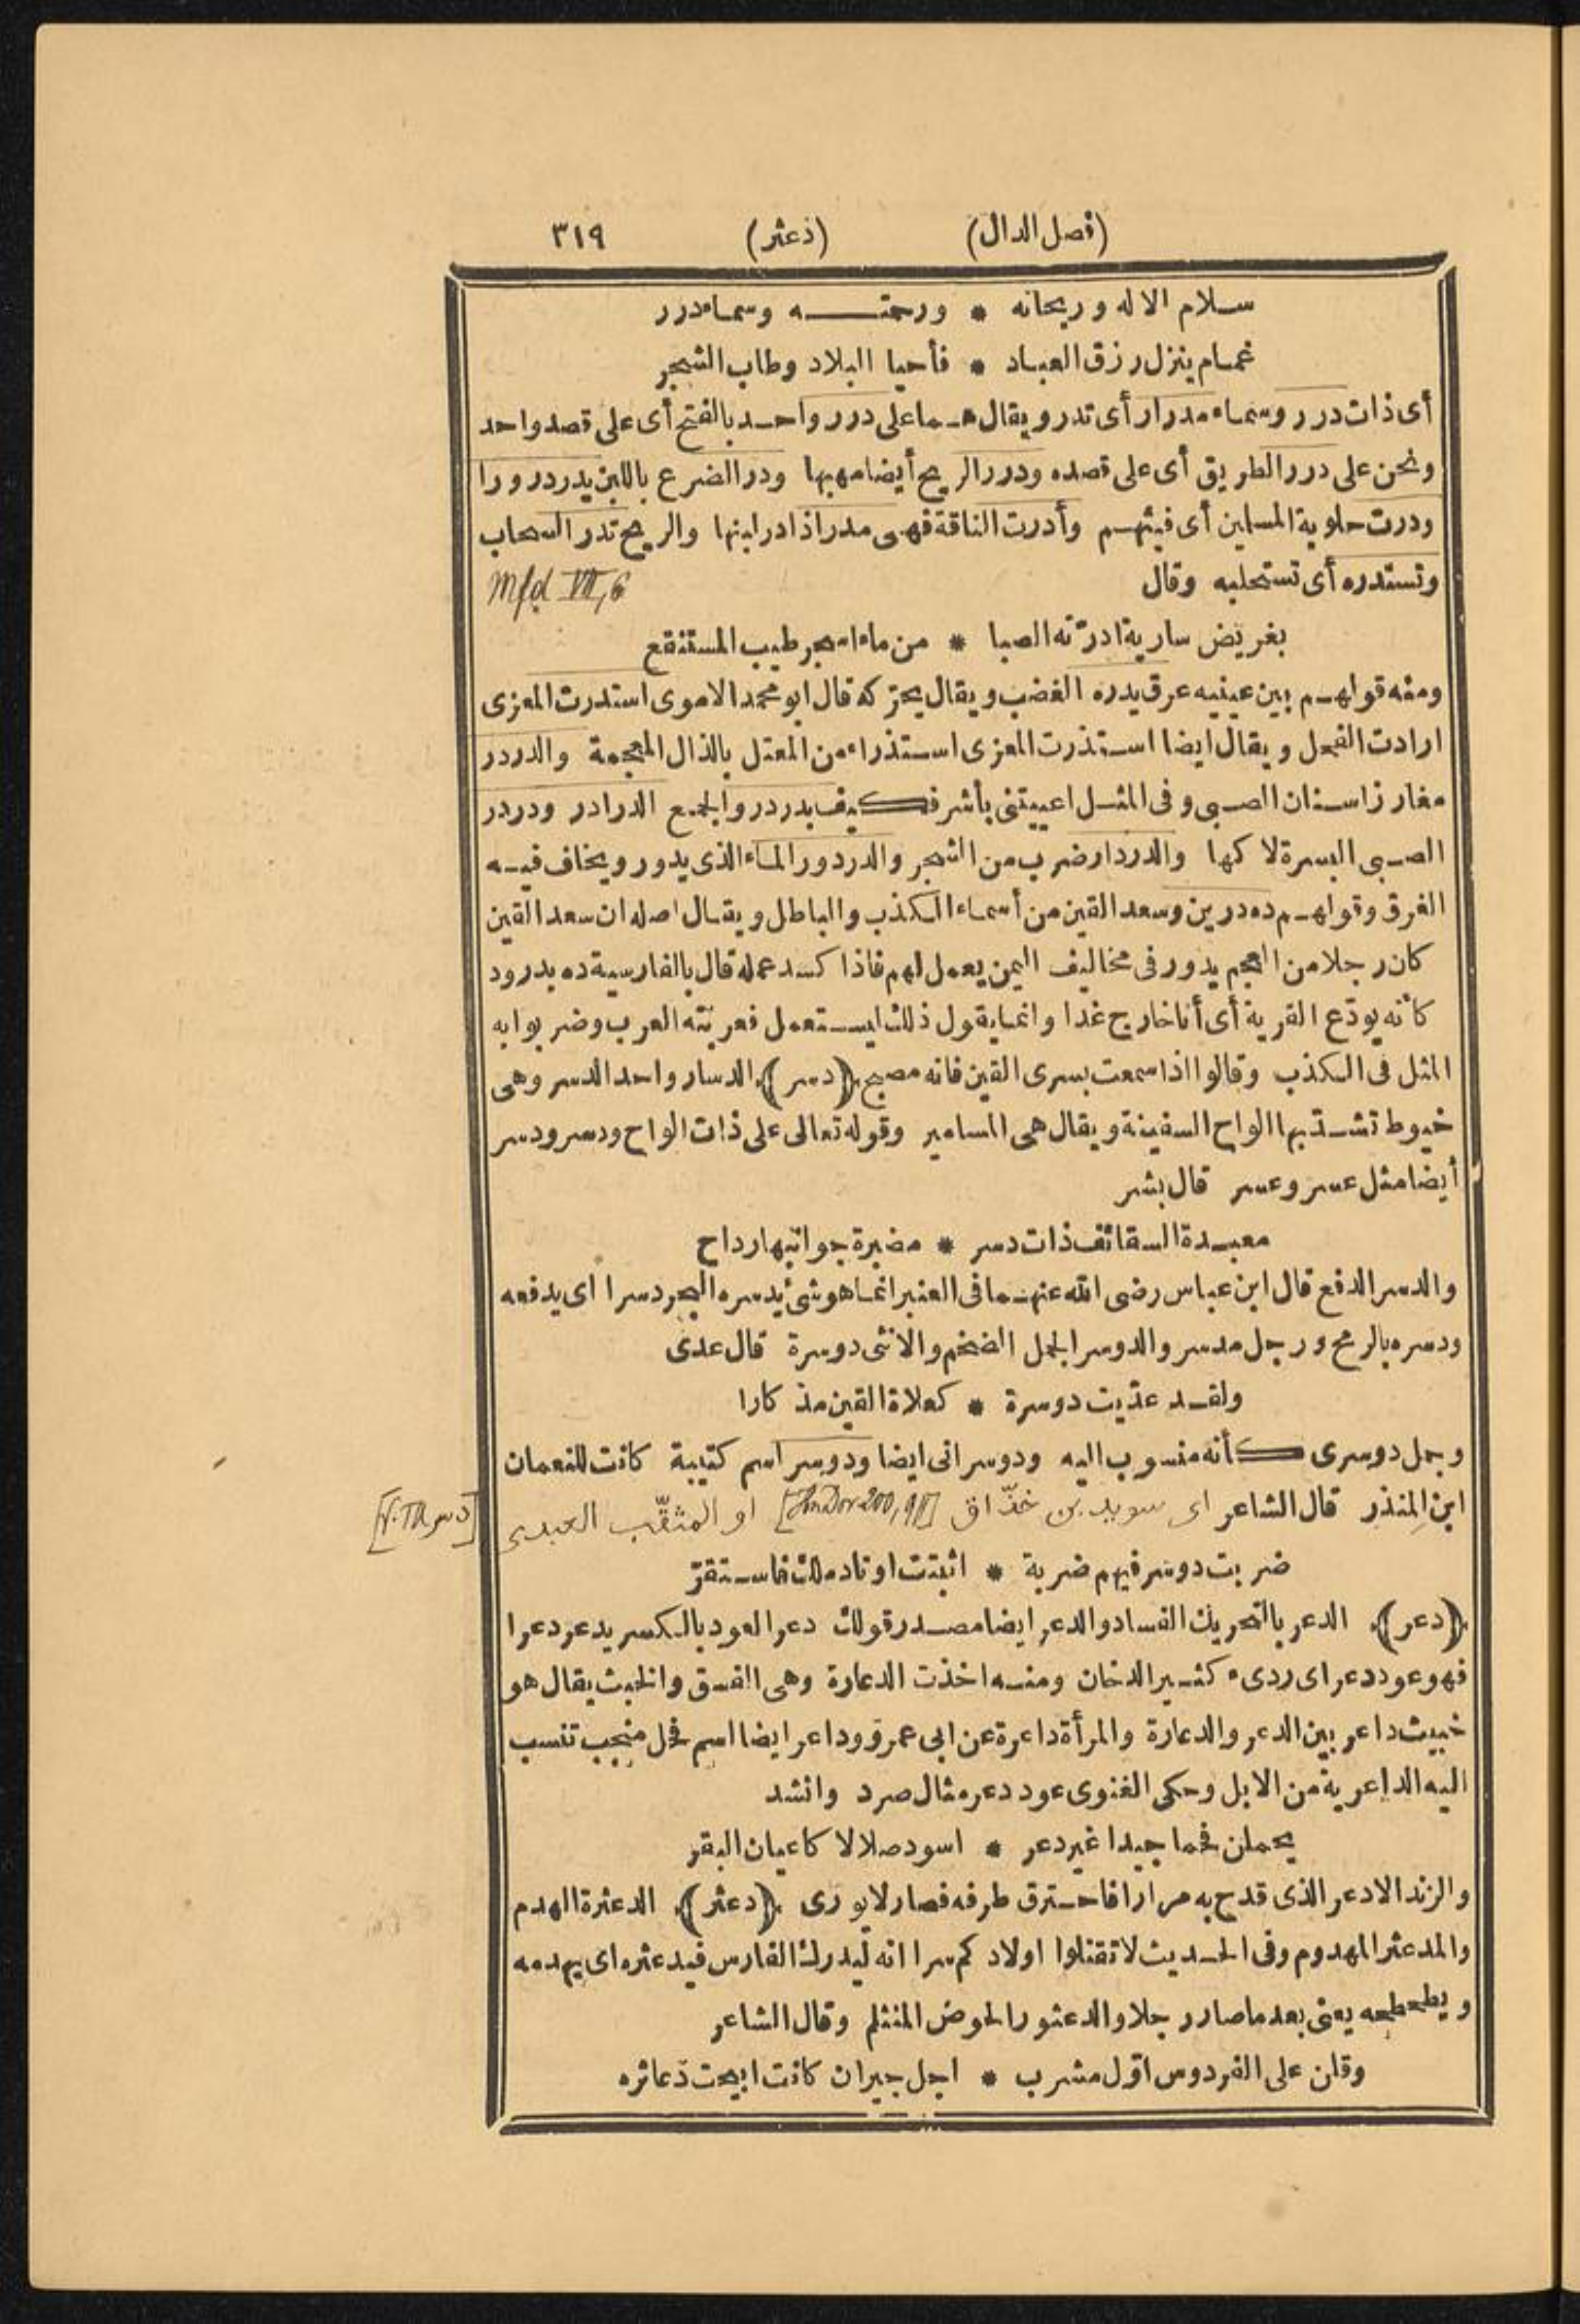 (فصل الدال) (دعثر) ٣١٩
سلام الاله وريحانه * ورحمته وسماء درر
غمام ينزل رزق العباد * فأحيا البلاد وطاب الشجر
أى ذات درر وسماء مدرار أى تدر ويقال هما على درر واحد بالفتح أى على قصد واحد
ونحن على درر الطريق أى على قصده ودرر الريح أيضا مهبها ودر الضرع باللبن يدر درورا
ودرت حلوبة المسلمين أى فيئهم وأدرت الناقة فهى مدر اذا در لبنها والريح تدر السحاب
وتستدره أى تستحلبه وقال Mfd VII, 6
بغريض سارية ادرّته الصبا * من ماء اسجر طيب المستنقع
ومنه قولهم بين عينيه عرق يدره الغضب ويقال يحركه قال ابو محمد الاموى استدرت المعزى
ارادت الفحل ويقال ايضا استذرت المعزى استذراء من المعتل بالذال المعجمة والدردر
مغارز اسنان الصبى وفى المثل اعييتنى بأشر فكيف بدردر والجمع الدرادر ودردر
الصبى البسرة لاكها والدردار ضرب من الشجر والدردور الماء الذى يدور ويخاف فيه
الغرق وقولهم ده درين وسعد القين من أسماء الكذب والباطل ويقال اصله ان سعد القين
كان رجلا من العجم يدور فى مخاليف اليمن يعمل لهم فاذا كسد عمله قال بالفارسية ده بدرود
كأنه يودّع القرية أى أنا خارج غدا وانما يقول ذلك ليستعمل فعربته العرب وضربوا به
المثل فى الكذب وقالوا اذا سمعت بسرى القين فانه مصبح (دسر) الدسار واحد الدسر وهى
خيوط تشدّ بها الواح السفينة ويقال هى المسامير وقوله تعالى على ذات الواح ودسر ودسر
أيضا مثل عسر وعسر قال بشر
معبدة السقائف ذات دسر * مضبرة جوانبها رداح
والدسر الدفع قال ابن عباس رضى الله عنهما فى العنبر انما هو شئ يدسره البحر دسرا اى يدفعه
ودسره بالرمح ورجل مدسر والدوسر الجمل الضخم والانثى دوسرة قال عدى
ولقد عدّيت دوسرة * كعلاة القين مذكارا
وجمل دوسرى كأنه منسوب اليه ودوسرانى ايضا ودوسر اسم كتيبة كانت للنعمان
ابن المنذر قال الشاعر اى سويد بن خذّاق [Ibn Dor 200, 9] او المثقّب العبدى [V. TA دسر]
ضربت دوسر فيهم ضربة * اثبتت اوتاد ملك فاستقرّ
(دعر) الدعر بالتحريك الفساد والدعر ايضا مصدر قولك دعر العود بالكسر يدعر دعرا
فهو عود دعر اى ردىء كثير الدخان ومنه اخذت الدعارة وهى الفسق والخبث يقال هو
خبيث داعر بين الدعر والدعارة والمرأة داعرة عن ابى عمرو وداعر ايضا اسم فحل منجب تنسب
اليه الداعرية من الابل وحكى الغنوى عود دعر مثال صرد وانشد
يحملن فحما جيدا غير دعر * اسود صلالا كاعيان البقر
والزند الادعر الذى قدح به مرارا فاحترق طرفه فصار لا يورى (دعثر) الدعثرة الهدم
والمدعثر المهدوم وفى الحديث لا تقتلوا اولادكم سرا انه ليدرك الفارس فيدعثره اى يهدمه
ويطحطحه يعنى بعدما صار رجلا والدعثور الحوض المنثلم وقال الشاعر
وقلن على الفردوس اوّل مشرب * اجل جير ان كانت ابيحت دعاثره